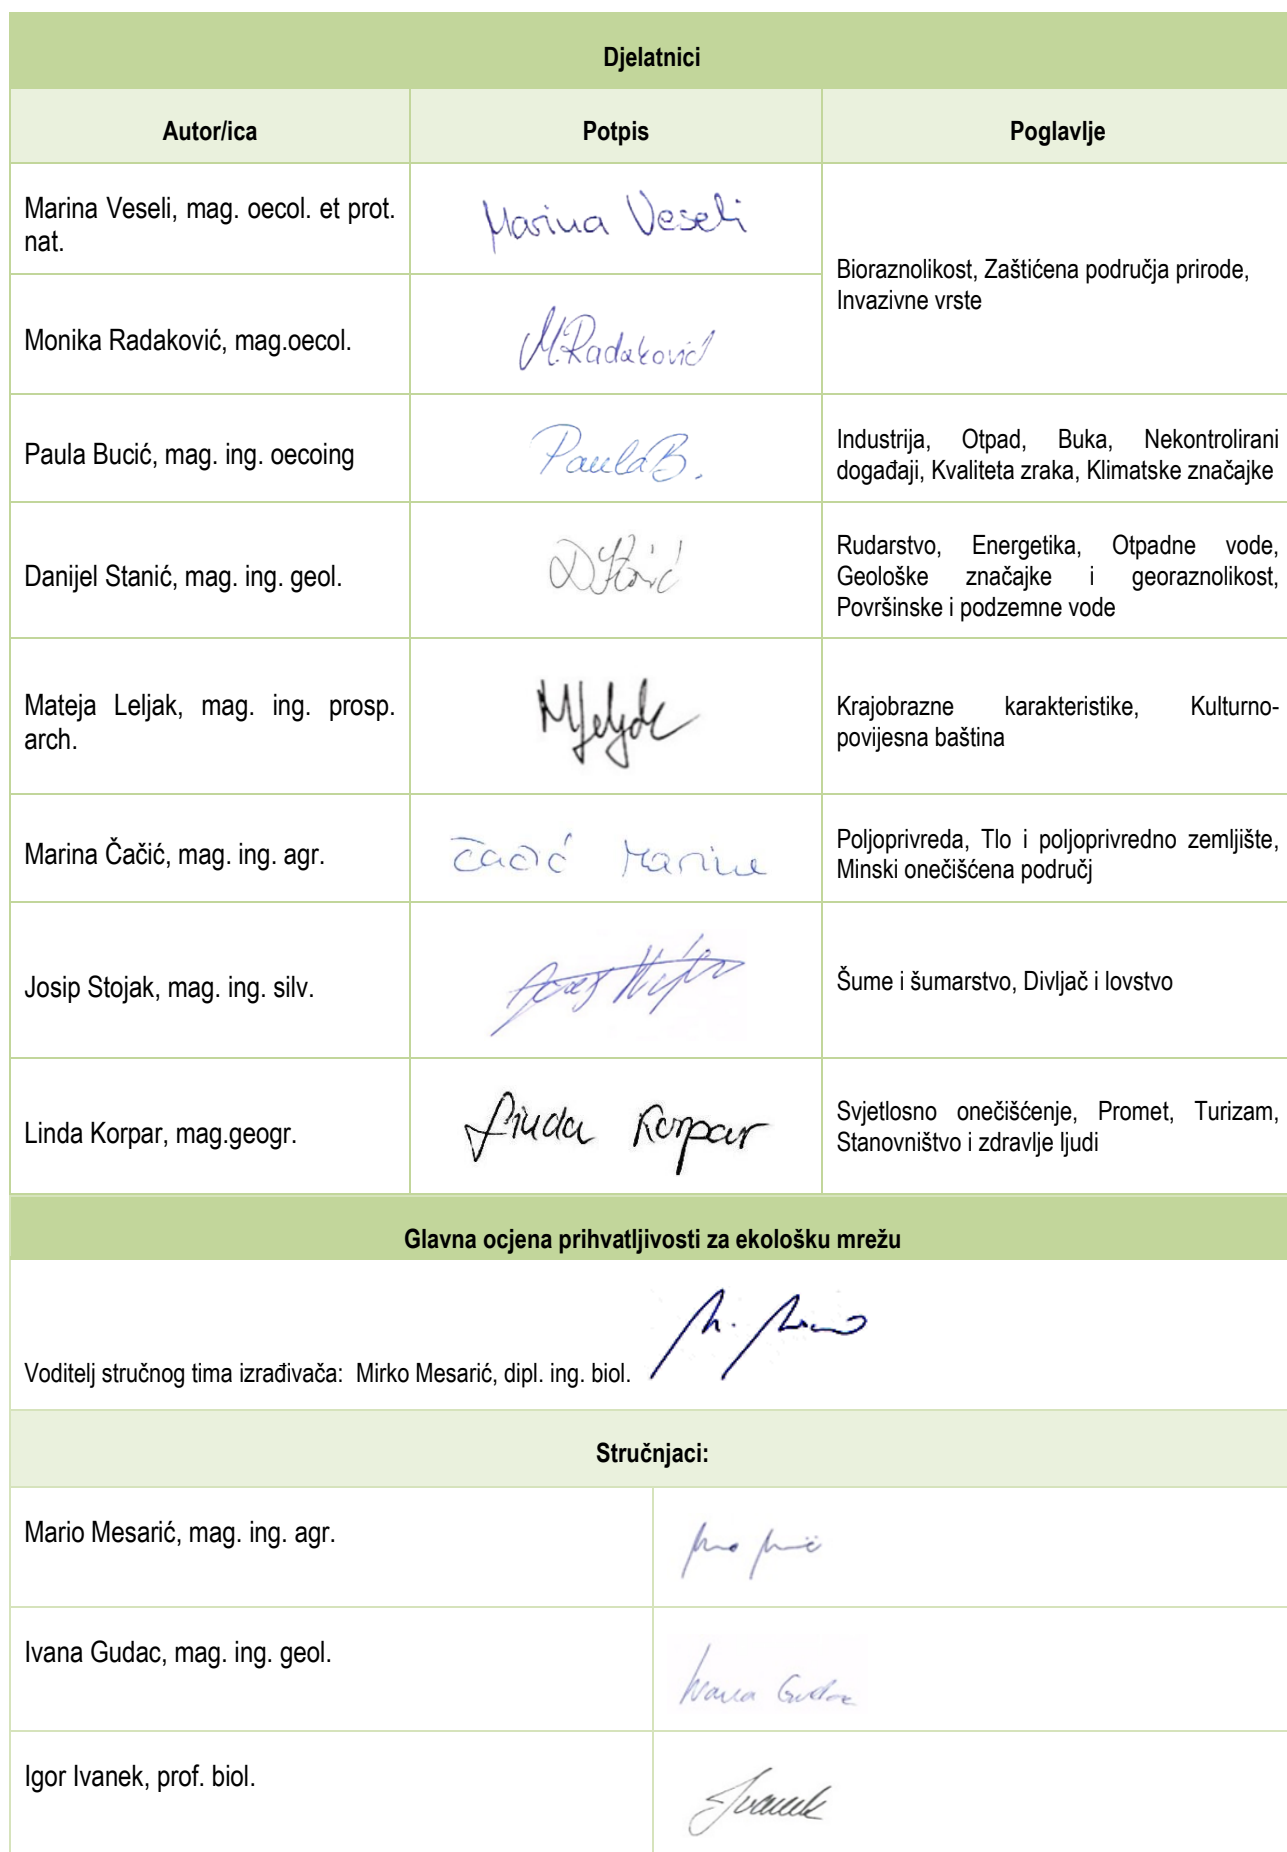 Djelatnici
Autor/ica Potpis Poglavlje
Marina Veseli, mag. oecol. et prot.
nat.
Marina Veseli
Bioraznolikost, Zaštićena područja prirode,
Invazivne vrste
Monika Radaković, mag.oecol.
M.Radaković
Paula Bucić, mag. ing. oecoing
PaulaB.
Industrija, Otpad, Buka, Nekontrolirani
događaji, Kvaliteta zraka, Klimatske značajke
Danijel Stanić, mag. ing. geol.
Rudarstvo, Energetika, Otpadne vode,
Geološke značajke i georaznolikost,
Površinske i podzemne vode
Mateja Leljak, mag. ing. prosp.
arch.
Krajobrazne karakteristike, Kulturno-
povijesna baština
Marina Čačić, mag. ing. agr.
Čačić Marina
Poljoprivreda, Tlo i poljoprivredno zemljište,
Minski onečišćena područj
Josip Stojak, mag. ing. silv.
Šume i šumarstvo, Divljač i lovstvo
Linda Korpar, mag.geogr.
Linda Korpar
Svjetlosno onečišćenje, Promet, Turizam,
Stanovništvo i zdravlje ljudi
Glavna ocjena prihvatljivosti za ekološku mrežu
Voditelj stručnog tima izrađivača: Mirko Mesarić, dipl. ing. biol.
Stručnjaci:
Mario Mesarić, mag. ing. agr.
Ivana Gudac, mag. ing. geol.
Ivana Gudac
Igor Ivanek, prof. biol.
Ivanek